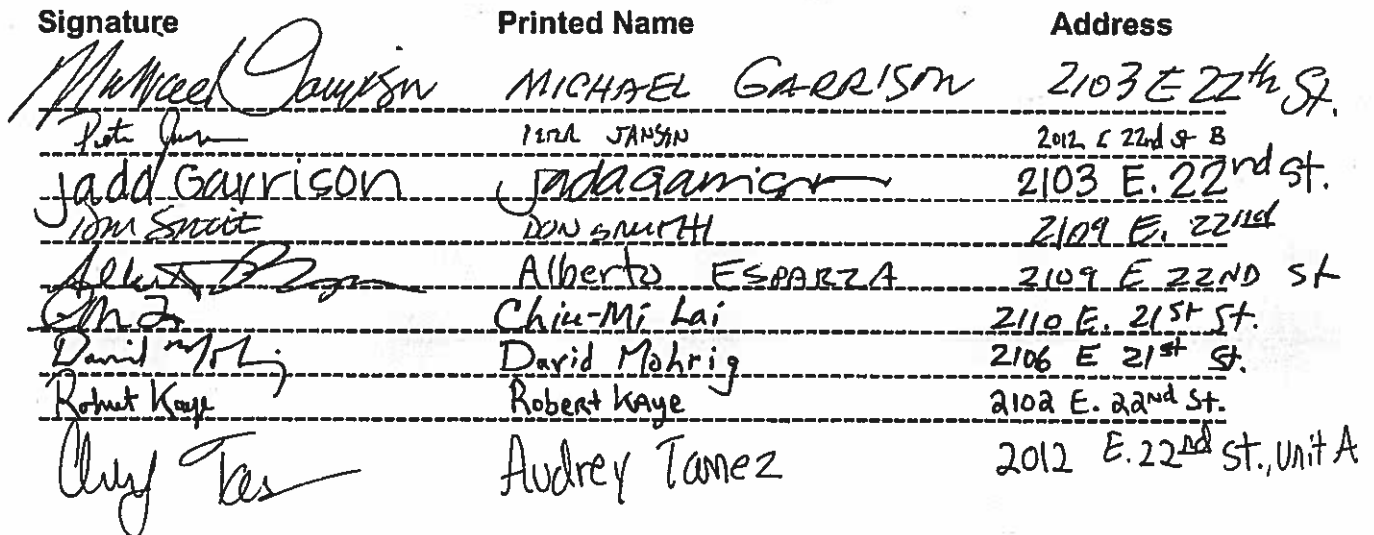 Signature Printed Name Address
Michael Garrison MICHAEL GARRISON 2103 E 22th St.
JANSIN 2012 E 22nd St B
jada Garrison jada garrison 2103 E. 22nd St.
Don Smith DON SMITH 2109 E. 22nd
Alberto ESPARZA 2109 E 22ND St
Chiu-Mi Lai 2110 E. 21st St.
David Mohrig David Mohrig 2106 E 21st St.
Robert Kaye Robert Kaye 2102 E. 22nd St.
Audrey Tamez 2012 E. 22nd St., Unit A